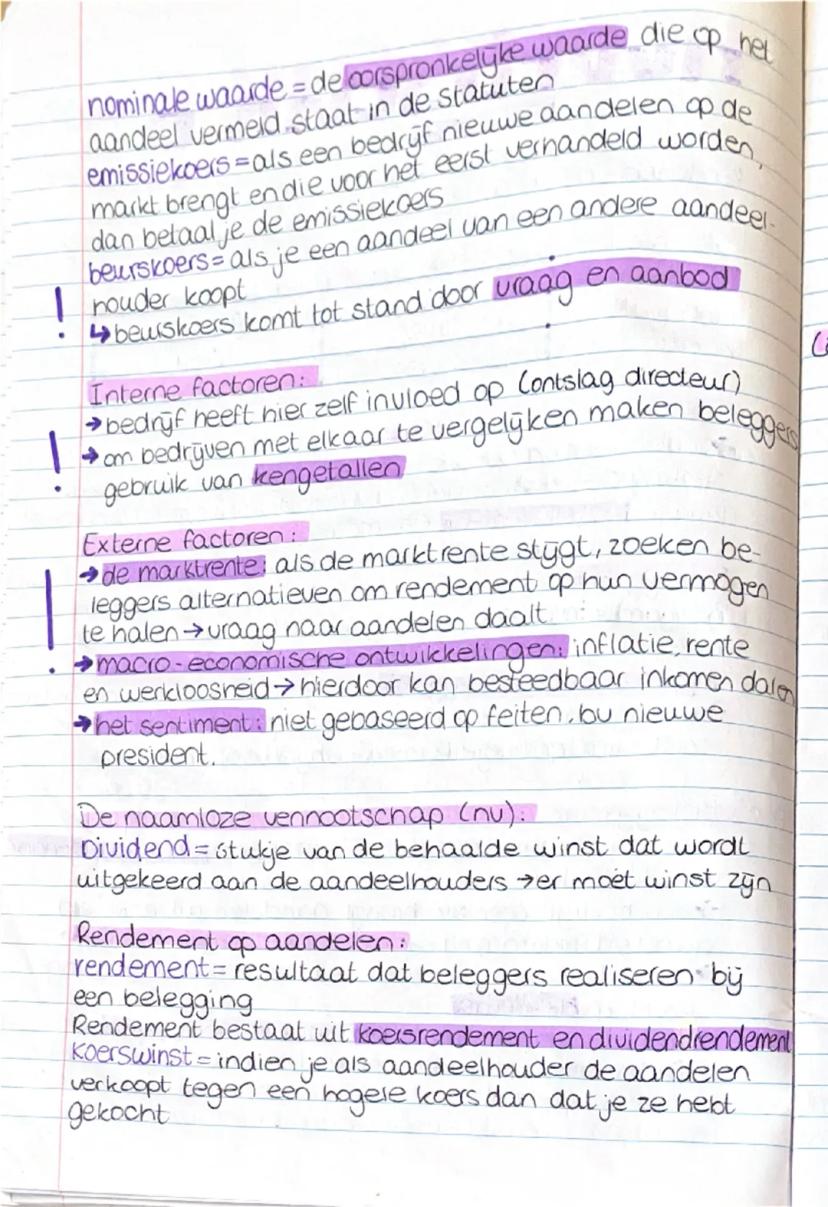 nominale waarde = de oorspronkelijke waarde die op het
aandeel vermeld staat in de statuten
emissiekoers = als een bedrijf nieuwe aandelen op de
markt brengt en die voor het eerst verhandeld worden,
dan betaal je de emissiekoers
beurskoers = als je een aandeel van een andere aandeel-
! houder koopt
↳ beurskoers komt tot stand door vraag en aanbod
Interne factoren:
→ bedrijf heeft hier zelf invloed op (ontslag directeur)
! → om bedrijven met elkaar te vergelijken maken beleggers
gebruik van kengetallen
Externe factoren:
! → de marktrente: als de marktrente stijgt, zoeken be-
leggers alternatieven om rendement op hun vermogen
te halen → vraag naar aandelen daalt
→ macro-economische ontwikkelingen: inflatie, rente
en werkloosheid → hierdoor kan besteedbaar inkomen dalen
→ het sentiment: niet gebaseerd op feiten, bv nieuwe
president.
De naamloze vennootschap (nv):
Dividend = stukje van de behaalde winst dat wordt
uitgekeerd aan de aandeelhouders → er moet winst zijn
Rendement op aandelen:
rendement = resultaat dat beleggers realiseren bij
een belegging
Rendement bestaat uit koersrendement en dividendrendement
Koerswinst = indien je als aandeelhouder de aandelen
verkoopt tegen een hogere koers dan dat je ze hebt
gekocht